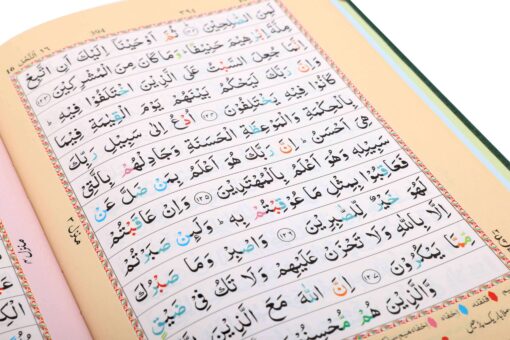 النَّحْل ١٦
لَمِنَ الصّٰلِحِيْنَ ﴿١٢٢﴾ ثُمَّ اَوْحَيْنَآ اِلَيْكَ اَنِ اتَّبِعْ
مِلَّةَ اِبْرٰهِيْمَ حَنِيْفًا ؕ وَمَا كَانَ مِنَ الْمُشْرِكِيْنَ ﴿١٢٣﴾
اِنَّمَا جُعِلَ السَّبْتُ عَلَى الَّذِيْنَ اخْتَلَفُوْا فِيْهِ ؕ
وَاِنَّ رَبَّكَ لَيَحْكُمُ بَيْنَهُمْ يَوْمَ الْقِيٰمَةِ فِيْمَا
كَانُوْا فِيْهِ يَخْتَلِفُوْنَ ﴿١٢٤﴾ اُدْعُ اِلٰى سَبِيْلِ رَبِّكَ
بِالْحِكْمَةِ وَالْمَوْعِظَةِ الْحَسَنَةِ وَجَادِلْهُمْ بِالَّتِيْ
هِيَ اَحْسَنُ ؕ اِنَّ رَبَّكَ هُوَ اَعْلَمُ بِمَنْ ضَلَّ عَنْ
سَبِيْلِهٖ وَهُوَ اَعْلَمُ بِالْمُهْتَدِيْنَ ﴿١٢٥﴾ وَاِنْ عَاقَبْتُمْ
فَعَاقِبُوْا بِمِثْلِ مَا عُوْقِبْتُمْ بِهٖ ؕ وَلَئِنْ صَبَرْتُمْ
لَهُوَ خَيْرٌ لِّلصّٰبِرِيْنَ ﴿١٢٦﴾ وَاصْبِرْ وَمَا صَبْرُكَ
اِلَّا بِاللّٰهِ وَلَا تَحْزَنْ عَلَيْهِمْ وَلَا تَكُ فِيْ ضَيْقٍ
مِّمَّا يَمْكُرُوْنَ ﴿١٢٧﴾ اِنَّ اللّٰهَ مَعَ الَّذِيْنَ
وَّالَّذِيْنَ هُمْ مُّحْسِنُوْنَ